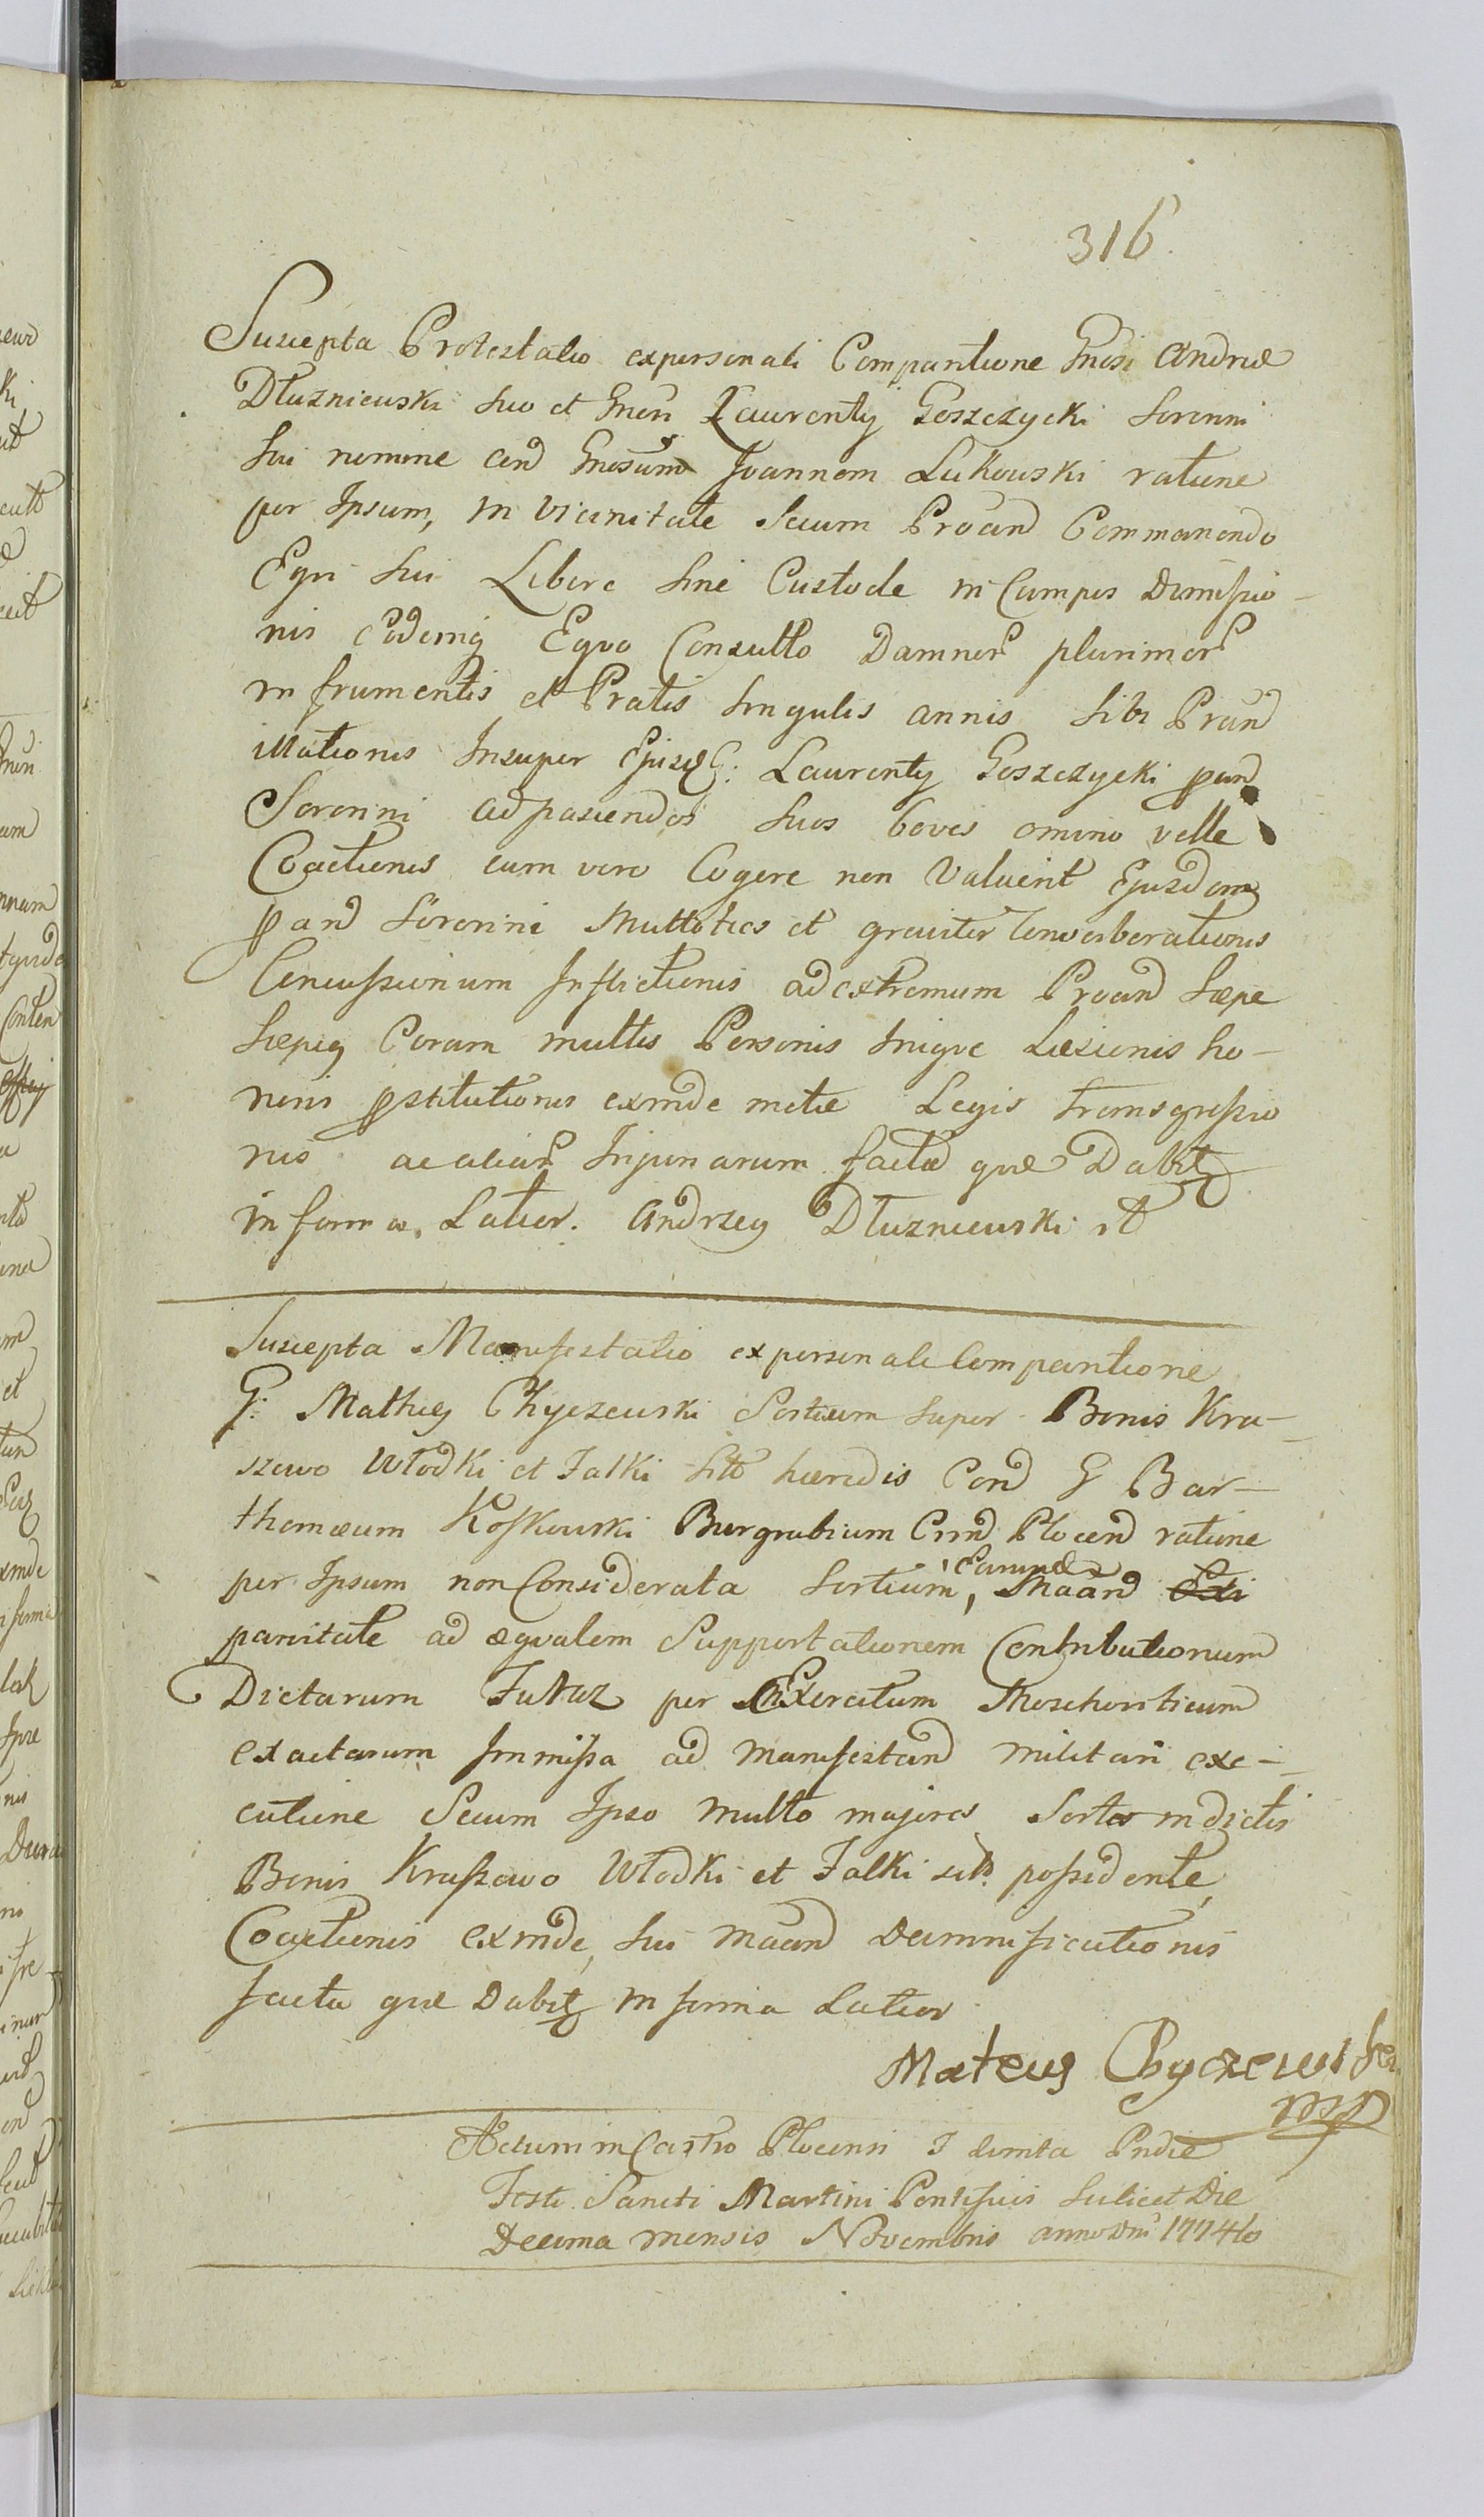 316.
Suscepta Protestatio expersonali Comparitione Gnosi Andreæ
Dłuzniewski suo et Gnori Laurenty Goszczycki Sororini
sui nomine cond Gnosum Joannem Lukowski ratione
per Ipsum, in vicinitate Secum Protand Commanendo
Equi sui Libere sine Custode in Campos Dimissio-
nis eodemq Equo Consulto Damnor plurimor
in frumentis et Pratis singulis annis sibi Prand
illationis Insuper Ejusd G: Laurenty Goszczycki prand
Sororini ad pascendos suos boves omino velle
Coactionis cum vero Cogere non valuerit Ejusdem
prand Sororini Multoties et graviter converberationis
Concussionum Inflictionis ad extremum Protand Sæpe
sæpiq Coram multis Personis Inique Læsionis ho-
noris prostitutionis exinde metæ Legis transgressio
nis ac aliar Injuriarum factæ quæ Dabit
in forma Latior. Andrzey Dłuzniewski
Suscepta Manifestatio ex personali Comparitione
G: Mathiey Chyczewski Sortium super Bonis Kra-
szewo Włodki et Falki sitt hæredis Cond G Bar-
thomæum Koskowski Burgrabium Plocen ratione
per Ipsum non Considerata sortium, Earund Maand
paritate ad æqualem Supportationem Contributionum
Dictarum Furaz per Exercitum Moschoviticum
exactarum Immissa ad Manifestand militari exe-
cutione Secum Ipso multo majores Sortes in dictis
Bonis Kraszewo Włodki et Falki sitt possidente,
Coactionis exinde, sui Maand Damnificationis
facta quæ Dabit in forma Latior
Mateusz Chyczewski
mpp
Actum in Castro Plocensi Feria Quinta Pridie
Festi Sancti Martini Pontificis scilicet Die
Decima mensis Novembris anno Dni 1774to